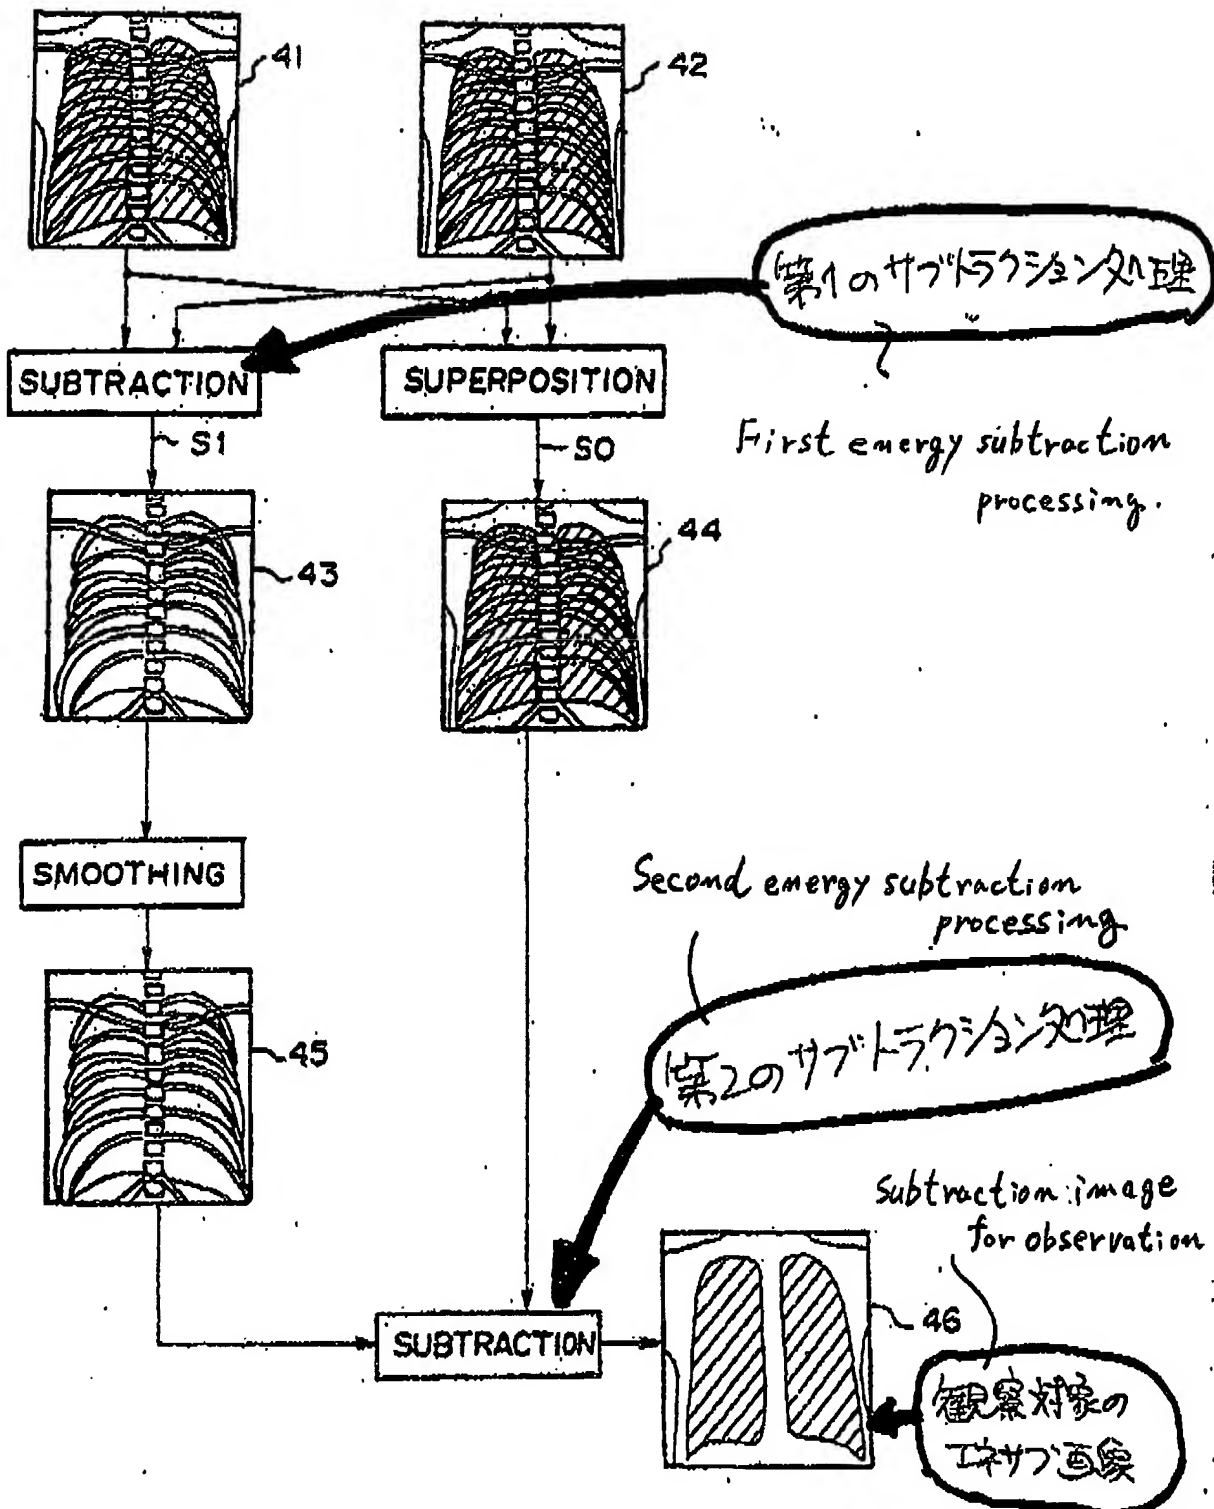 41
42
第1のサブトラクション処理
SUBTRACTION
SUPERPOSITION
S1
S0
First energy subtraction
processing.
43
44
SMOOTHING
Second energy subtraction
processing
45
第2のサブトラクション処理
subtraction image
for observation
46
SUBTRACTION
観察対象の
エネサブ画像